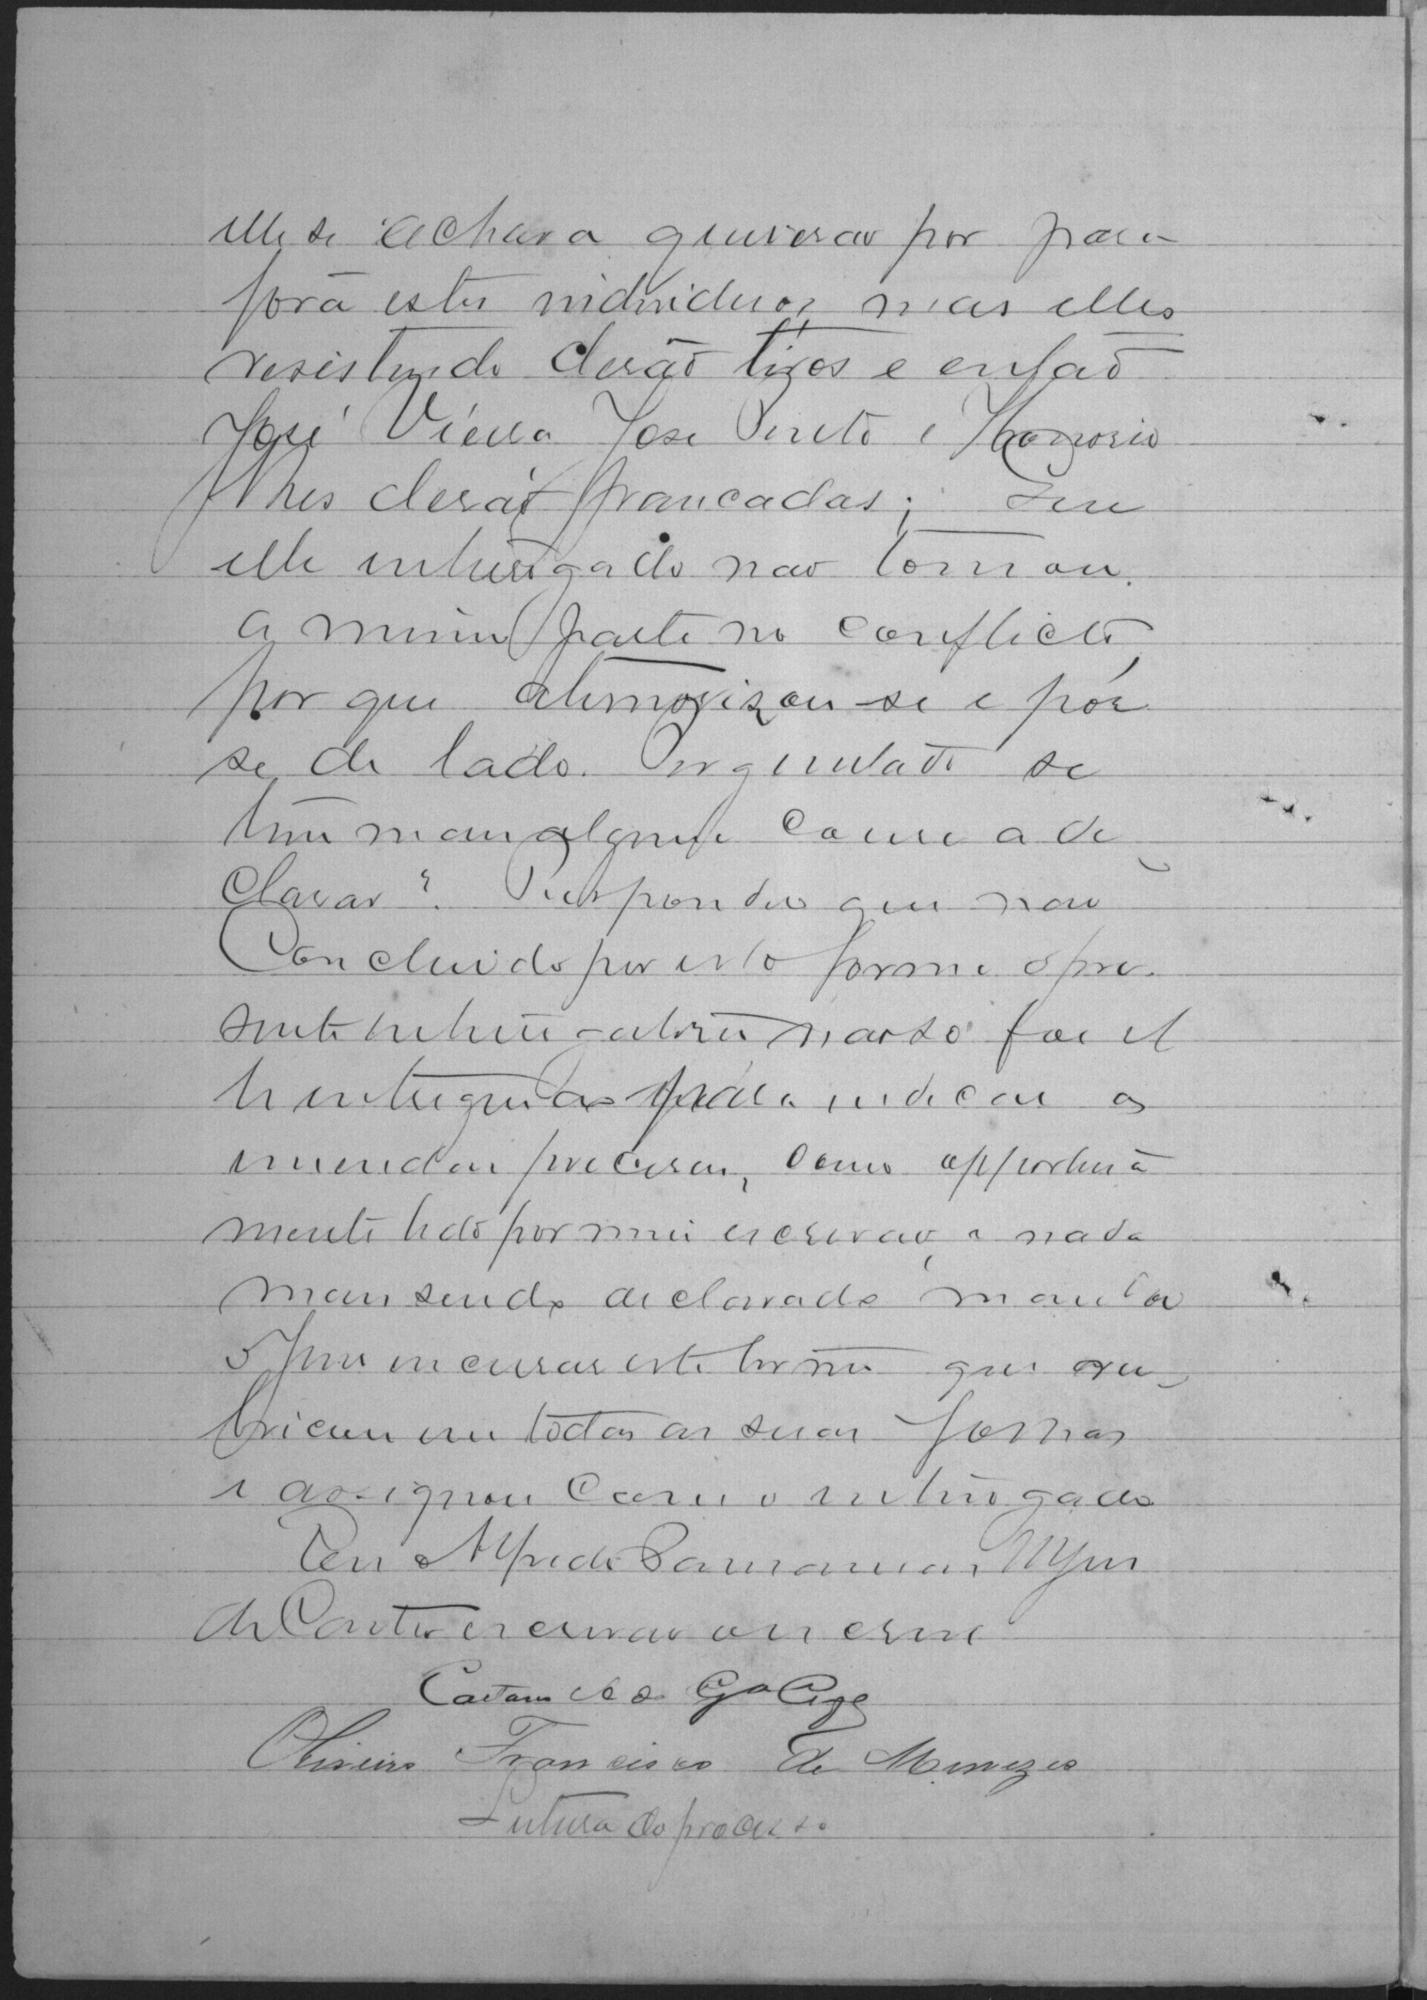 elle se achava quiserão por para
fora estes individuos, mas elles
resistindo derão tiros e então
José Vieira José Pinto e Honorio
lhes derão prancadas; que
elle interrogado não tomou
a minima parte no conflicto,
por que atimorizou-se e pôz
se de lado. Perguntado se
tem mais alguma cousa a de
clarar? Respondeu que não
Concluido por esta forma o pre-
sente interrogatorio não só foi el
le interrogado para indicar as
emendas precisas, como opportuna
mente lido por mim escrivão, e nada
mais sendo declarado manda
o Juiz encerrar este termo que ru-
bricou em todas as suas folhas
e assignou com o interrogado
Eu Alfredo
de Castro escrivão o escrevi
Caetano
Oliveira Francisco de Menezes
Leitura do processo